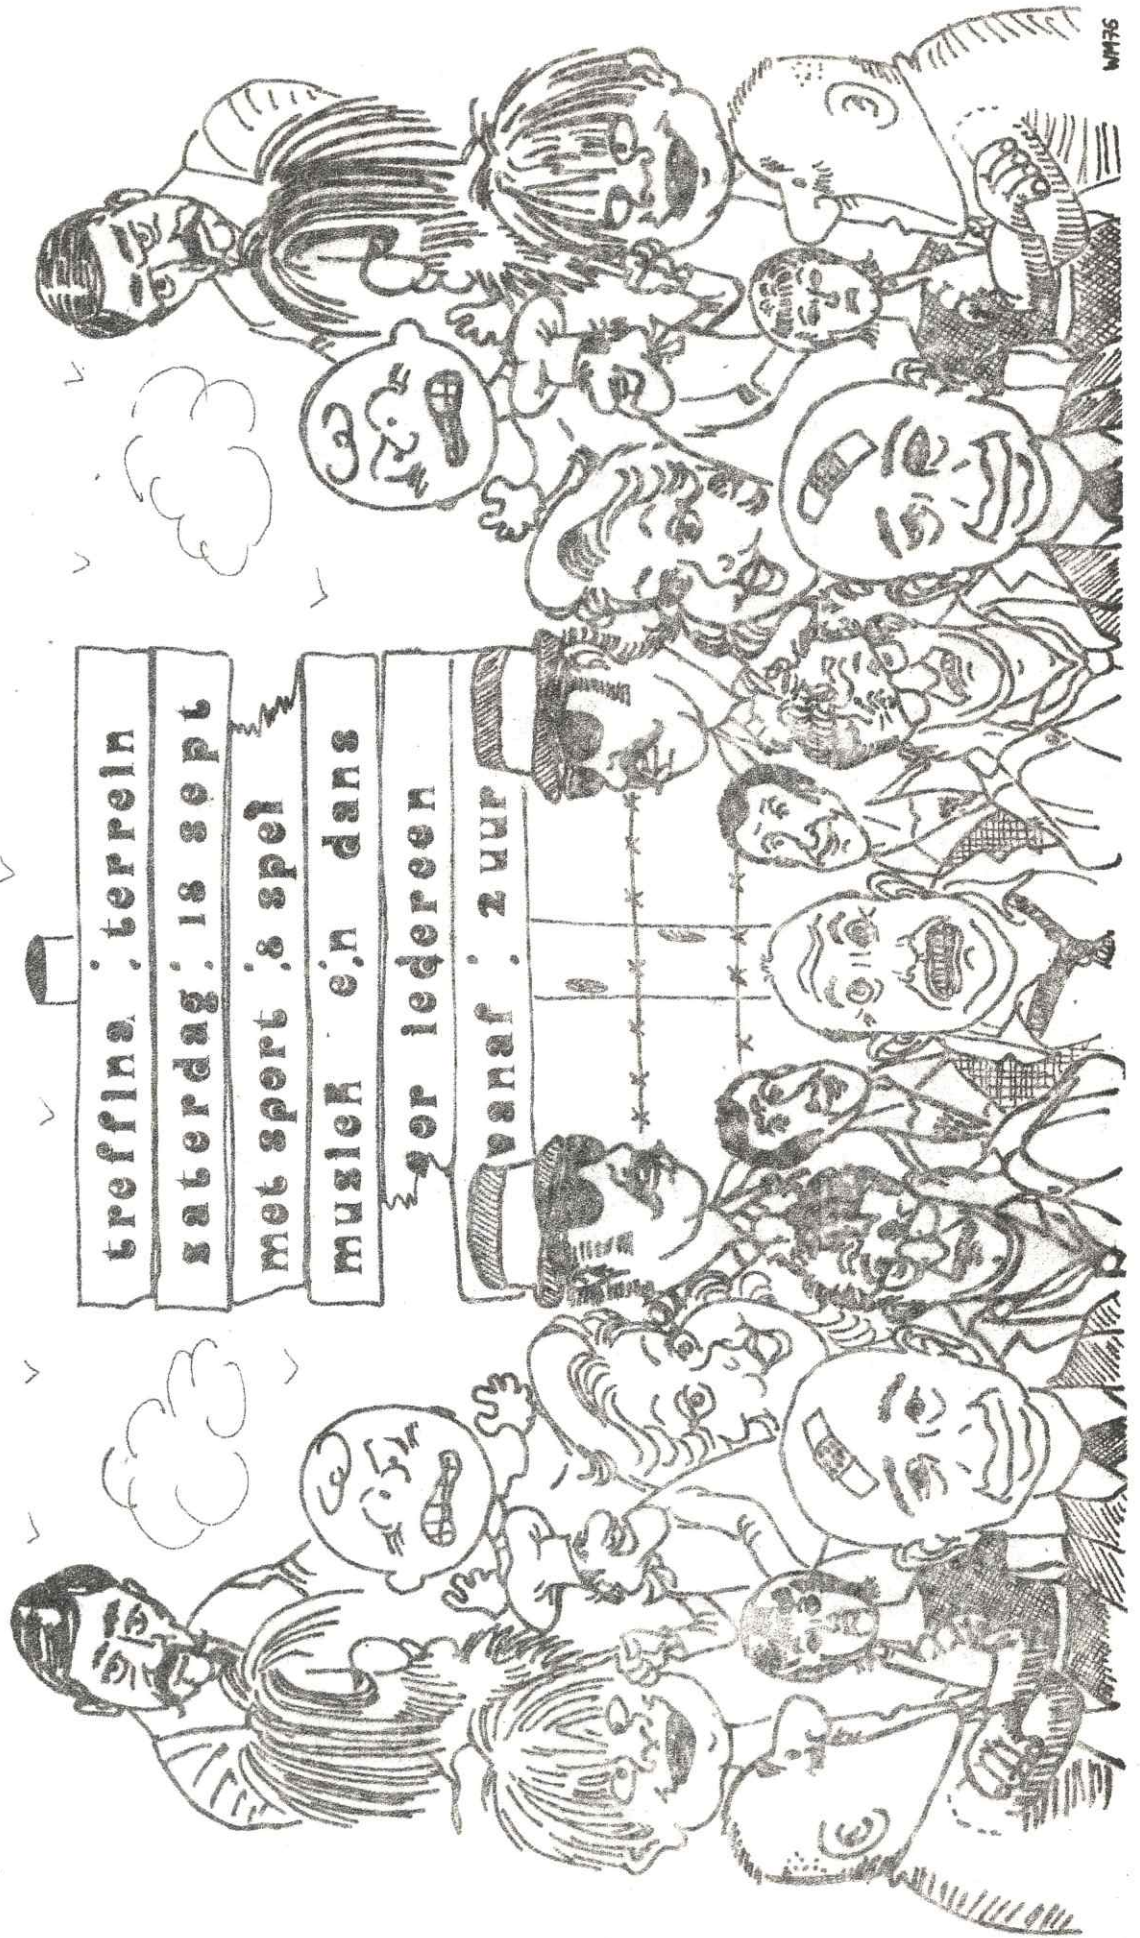 treffina : terrein
saterdag : 18 sept
met sport & spel
musiek en dans
vor iedereen
vanaf : 2 uur
WM76